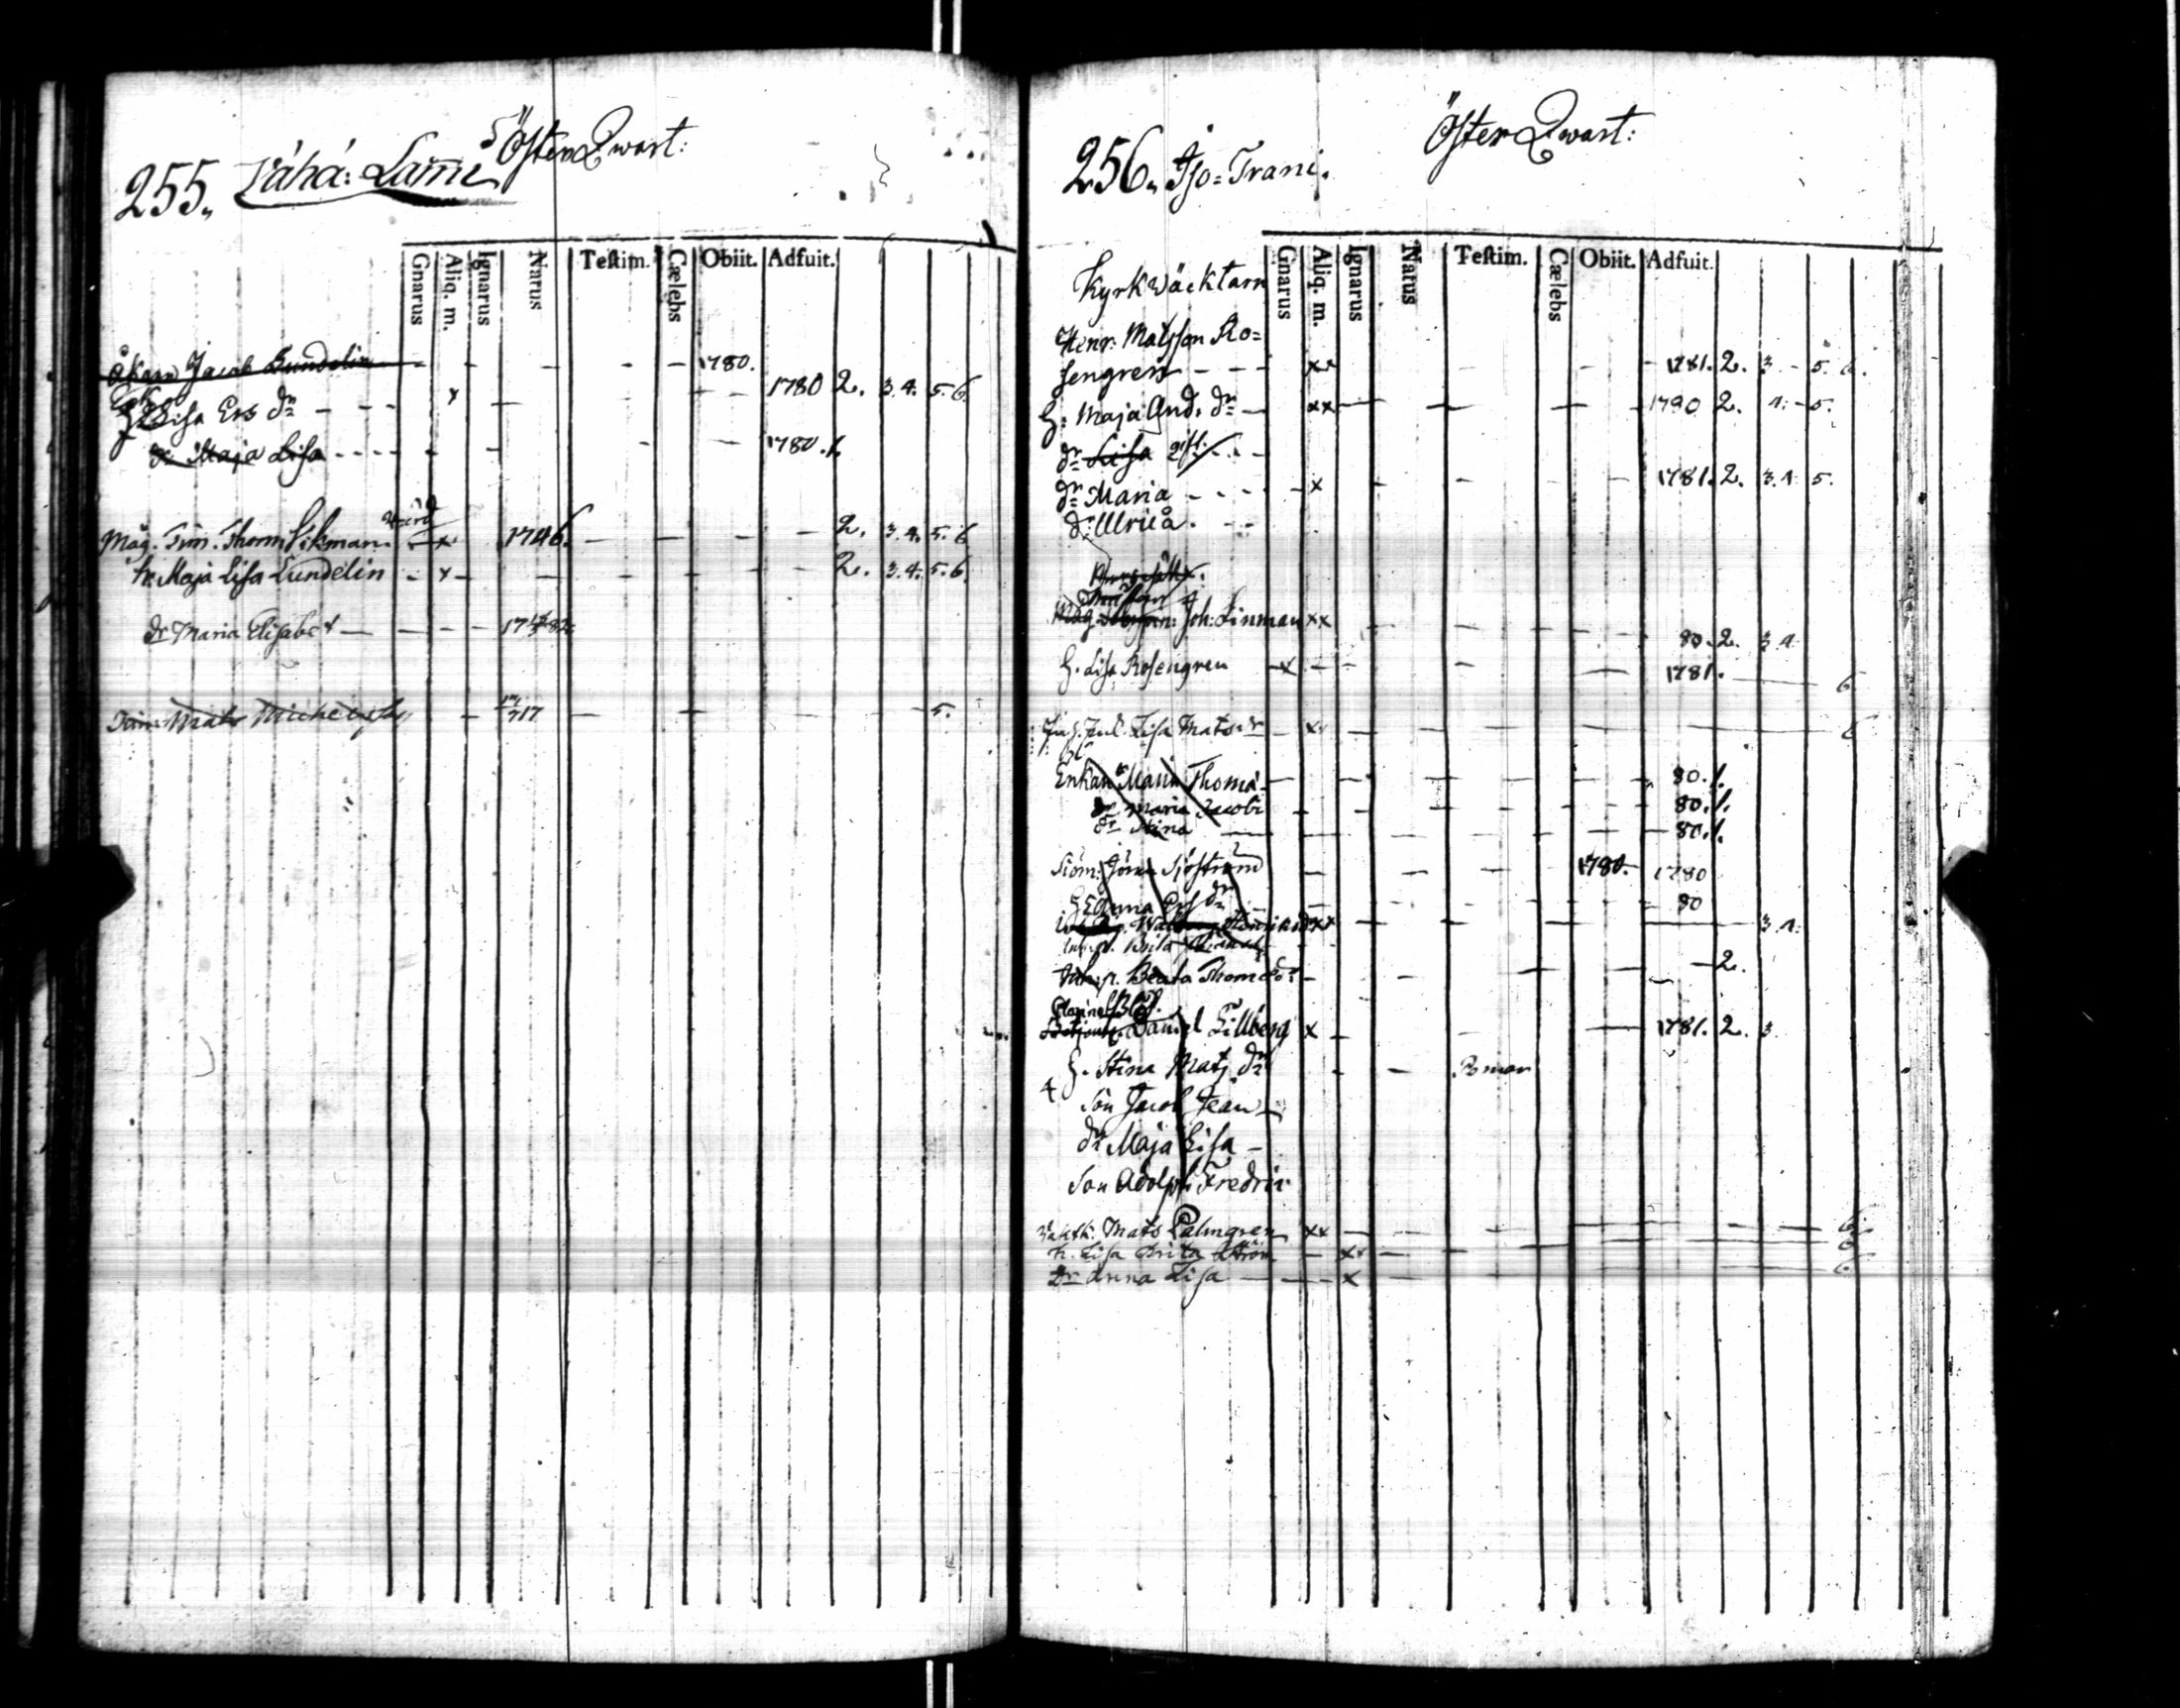 Öster Qwart:
255. Vähä: Lami
Gnarus Aliq. m. Ignarus Natus Testim. Cælebs Obiit. Adfuit.
Åkarn Jacob Lundelin - - - - 1780.
Lisa Ers dr - - - x - - - 1780 2. 3. 4. 5. 6.
dr Maja Lisa - - - - - - - - 1780. 1.
Måg. Tim. Thom. Sikman x 1746. - - - - 2. 3. 4. 5. 6
h. Maja Lisa Lundelin - x - - - - - - 2. 3. 4. 5. 6.
dr Maria Elisabet - - - - 17 82.
Mats Michelsson - 717 - - - - 5.
Öster Qwart:
256. Iso-Trani.
Gnarus Aliq. m. Ignarus Natus Testim. Cælebs Obiit. Adfuit.
Kyrkwäcktarn
Henr. Matsson Ro=
sengren - - - xx - - - 1781. 2. 3. - 5. 6.
H. Maja And. dr - xx - - - - 1780 2. 4. - 5.
dr Lisa - -
dr Maria - - - - x - - - 1781. 2. 3. 4. 5.
d: Ulrica. - -
Joh: Linman xx - - - - 80. 2. 3. 4.
H. Lisa Rosengren - x - - - - 1781. - 6
Lisa Mats dr - xx - - - 6
Enkan Maria Thoma - - - - - - 80. 1.
dr Maria Jacobi - - - - - - 80. 1.
dr Stina - - - - - - 80. 1.
Siöm: Göran Sjöström - - - 1780. 1780
H Anna Ers dr - - - - - 80
xx - - - - - 3. 4.
Inh. p. Brita
Inh. p. Beata Thomæ dr - - - - - 2.
Daniel Tillberg x - - - - 1781. 2. 3.
H. Stina Mats dr - -
4
Son Jacob Jean -
dr Maja Lisa -
Son Adolph Fredric
Mats Palmgren xx - - - - - 6.
h. Lisa Brita - xx - - - - 6.
Dr Anna Lisa - - - x - - - 6.